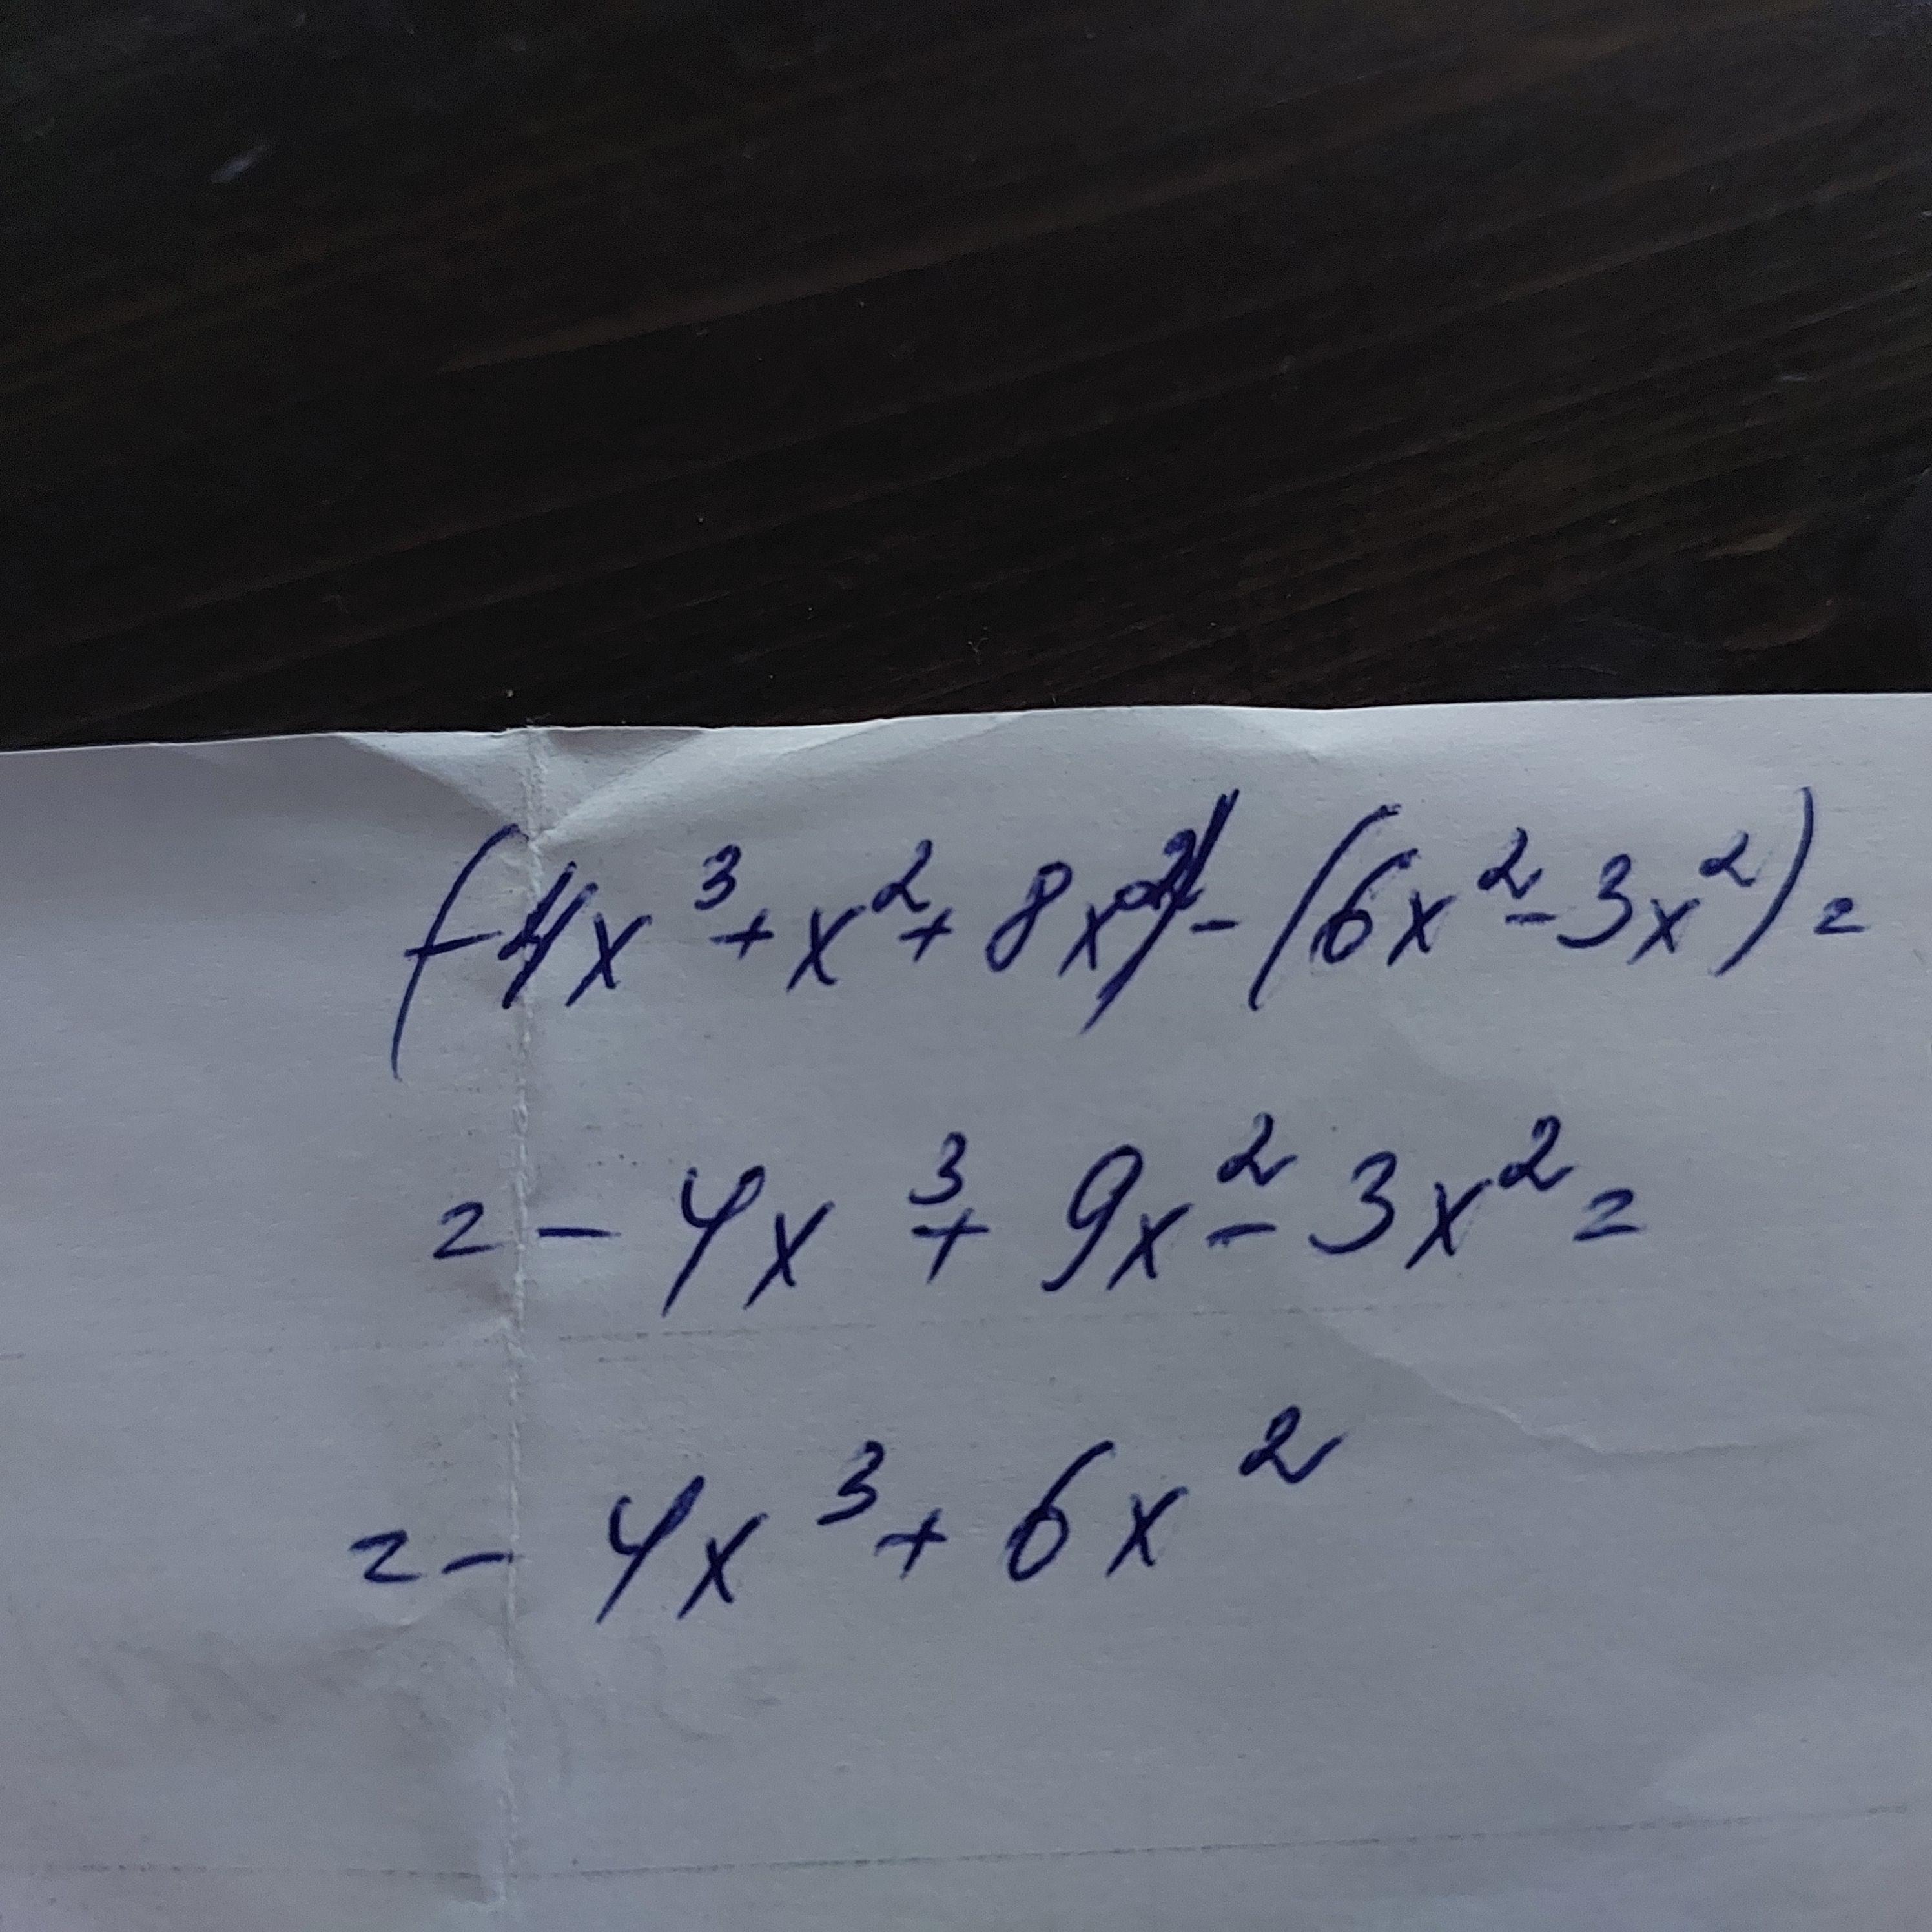 (-4x³+x²+8x²)-(6x²-3x²)=
=-4x³+9x²-3x²=
=-4x³+6x²